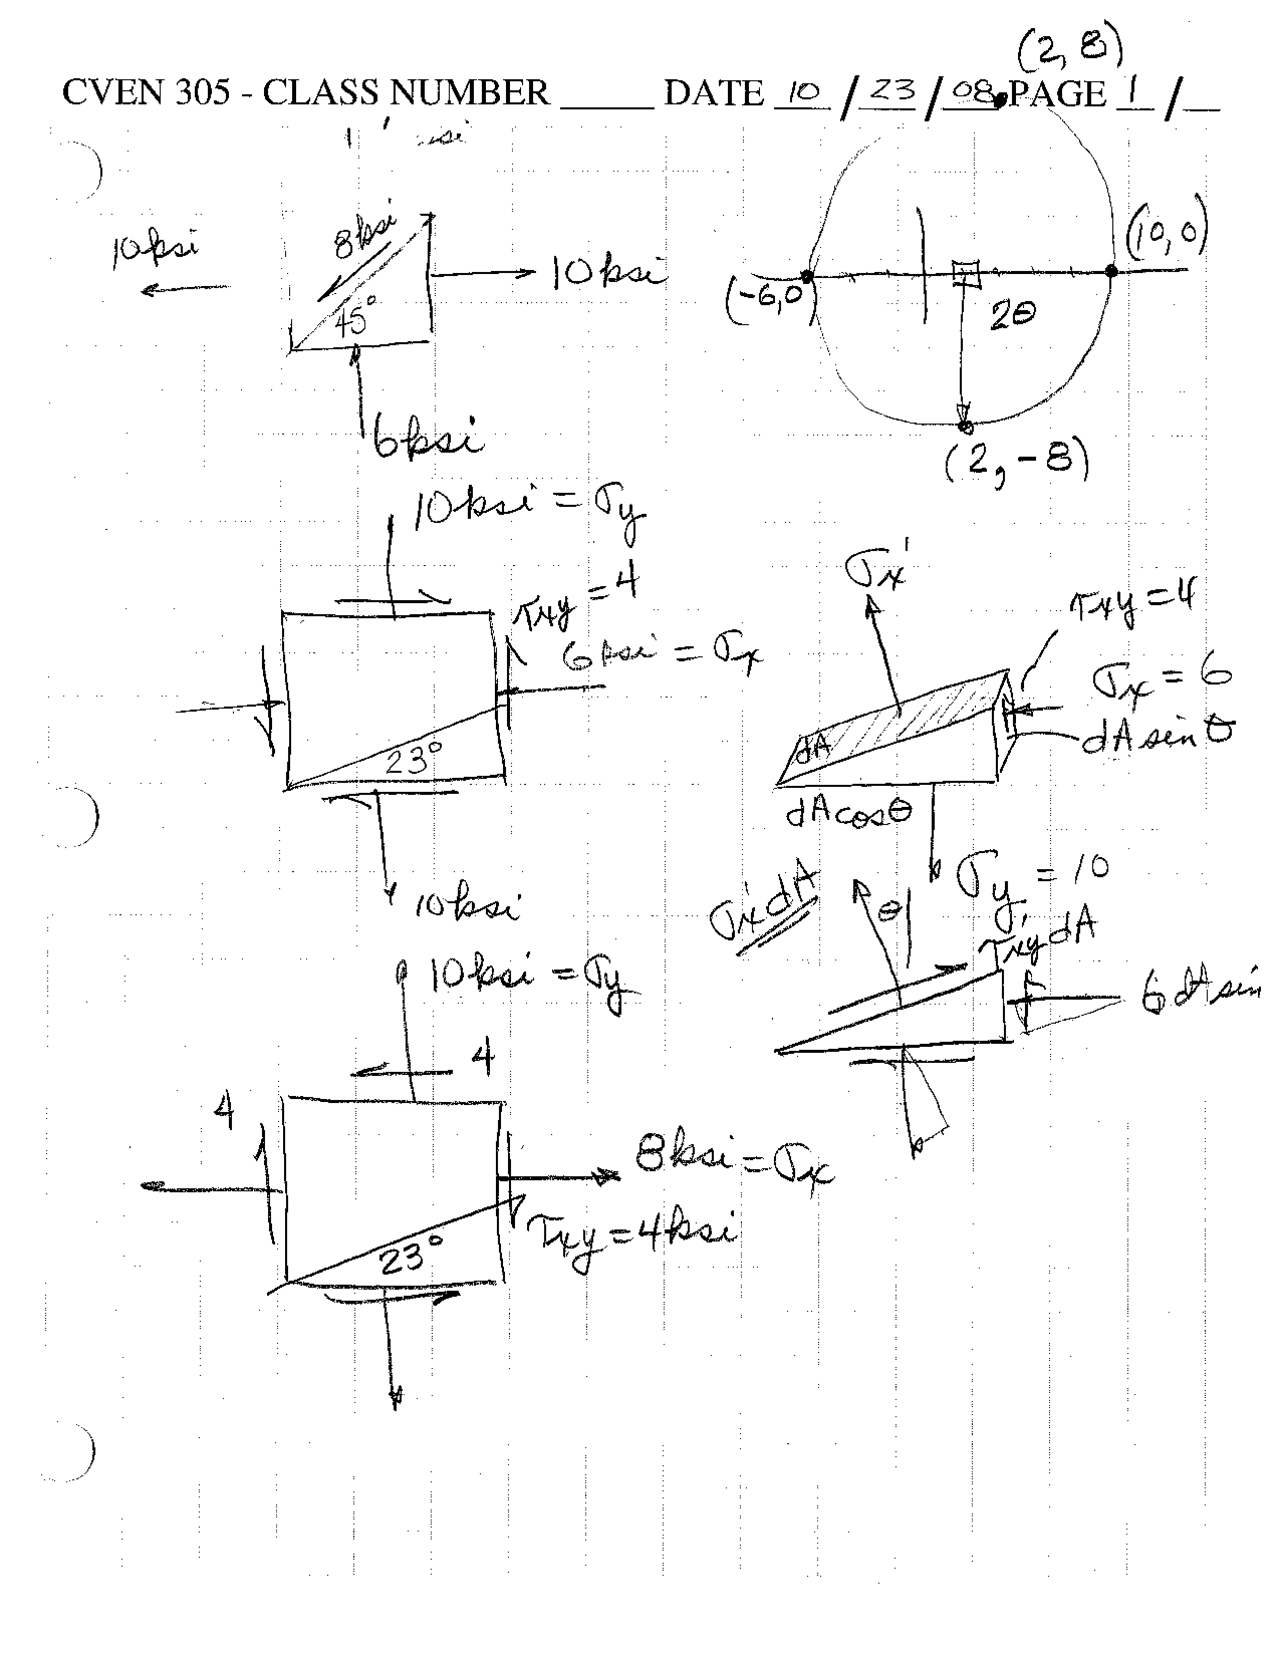 (2, 8)
CVEN 305 - CLASS NUMBER _____ DATE 10 / 23 / 08 PAGE 1 / __
10ksi
8ksi
45°
10ksi
6ksi
(-6,0)
(10,0)
2θ
(2, -8)
10ksi = σy
τxy = 4
6ksi = σx
23°
10ksi
σx'
τxy = 4
σx = 6
dA sin θ
dA
dA cos θ
σy = 10
σx'dA
θ
τxy'dA
6 dA sin
10ksi = σy
4
4
8ksi = σx
τxy = 4ksi
23°